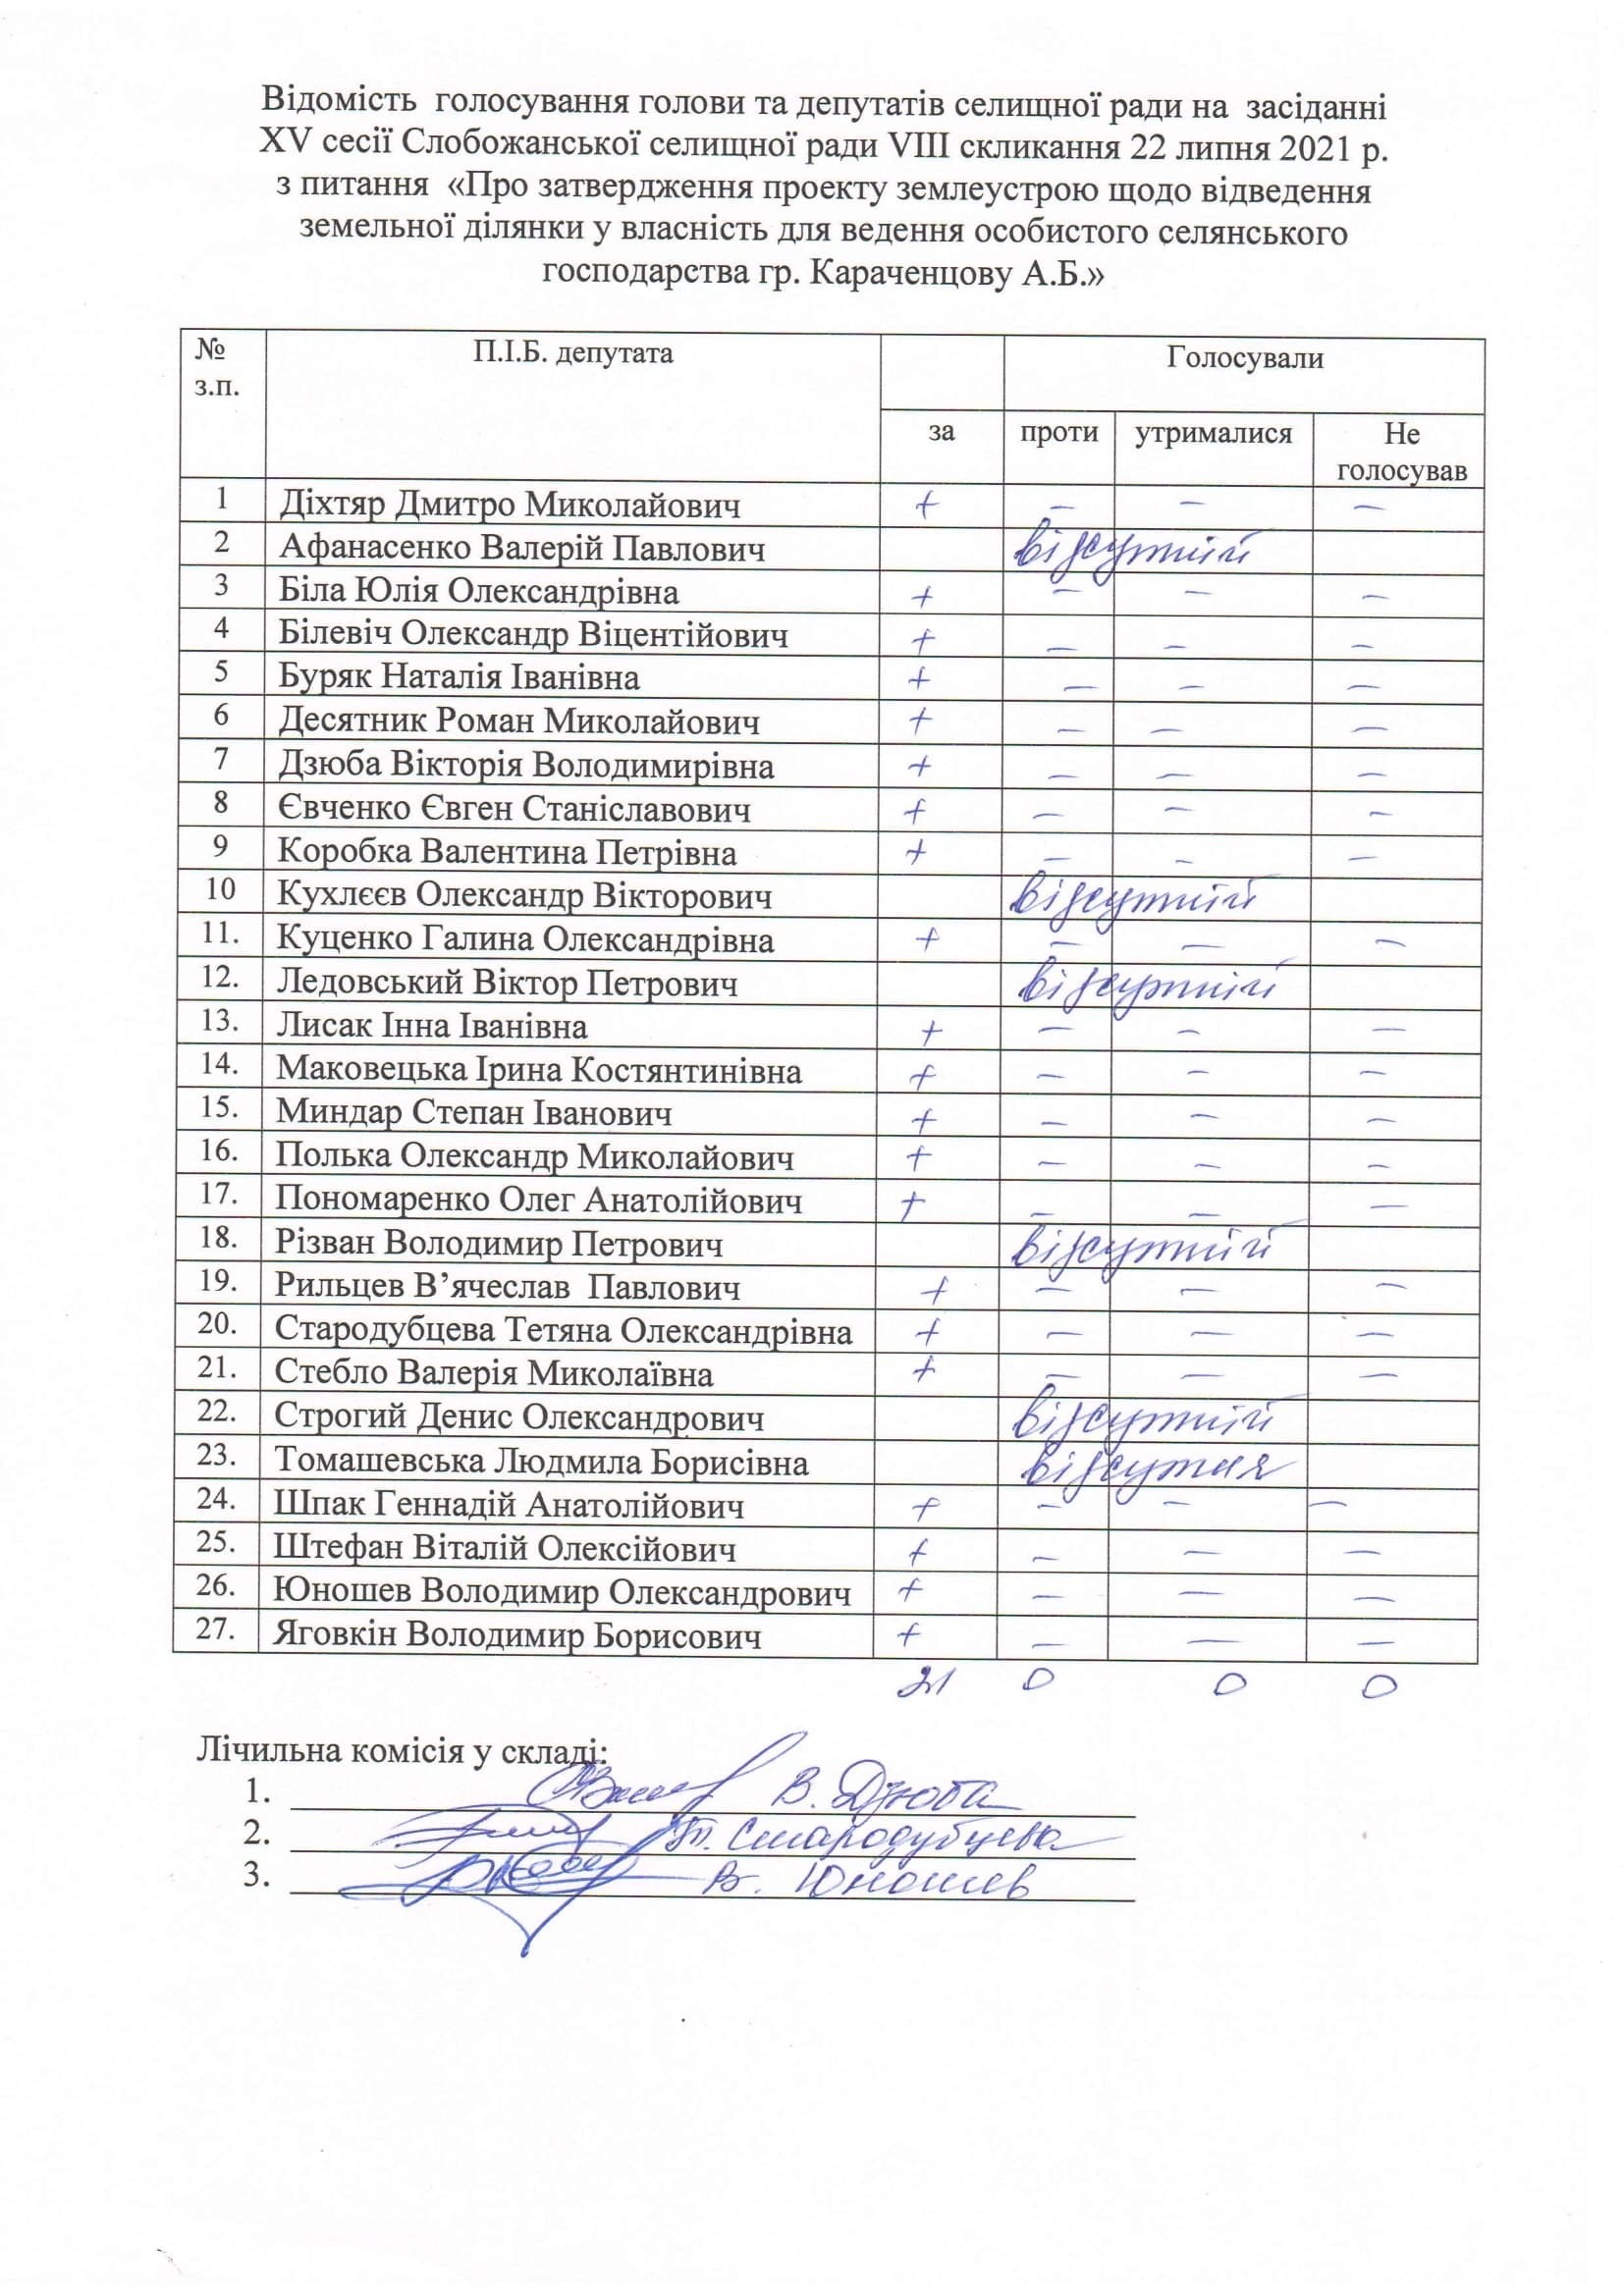 Відомість голосування голови та депутатів селищної ради на засіданні
XV сесії Слобожанської селищної ради VIII скликання 22 липня 2021 р.
з питання «Про затвердження проекту землеустрою щодо відведення
земельної ділянки у власність для ведення особистого селянського
господарства гр. Караченцову А.Б.»
№ з.п. П.І.Б. депутата Голосували
за проти утрималися Не голосував
1 Діхтяр Дмитро Миколайович + – – –
2 Афанасенко Валерій Павлович відсутній
3 Біла Юлія Олександрівна + – – –
4 Білевіч Олександр Віцентійович + – – –
5 Буряк Наталія Іванівна + – – –
6 Десятник Роман Миколайович + – – –
7 Дзюба Вікторія Володимирівна + – – –
8 Євченко Євген Станіславович + – – –
9 Коробка Валентина Петрівна + – – –
10 Кухлєєв Олександр Вікторович відсутній
11. Куценко Галина Олександрівна + – – –
12. Ледовський Віктор Петрович відсутній
13. Лисак Інна Іванівна + – – –
14. Маковецька Ірина Костянтинівна + – – –
15. Миндар Степан Іванович + – – –
16. Полька Олександр Миколайович + – – –
17. Пономаренко Олег Анатолійович + – – –
18. Різван Володимир Петрович відсутній
19. Рильцев В’ячеслав Павлович + – – –
20. Стародубцева Тетяна Олександрівна + – – –
21. Стебло Валерія Миколаївна + – – –
22. Строгий Денис Олександрович відсутній
23. Томашевська Людмила Борисівна відсутня
24. Шпак Геннадій Анатолійович + – – –
25. Штефан Віталій Олексійович + – – –
26. Юношев Володимир Олександрович + – – –
27. Яговкін Володимир Борисович + – – –
21 0 0 0
Лічильна комісія у складі:
1. В. Дзюба
2. Т. Стародубцева
3. В. Юношев